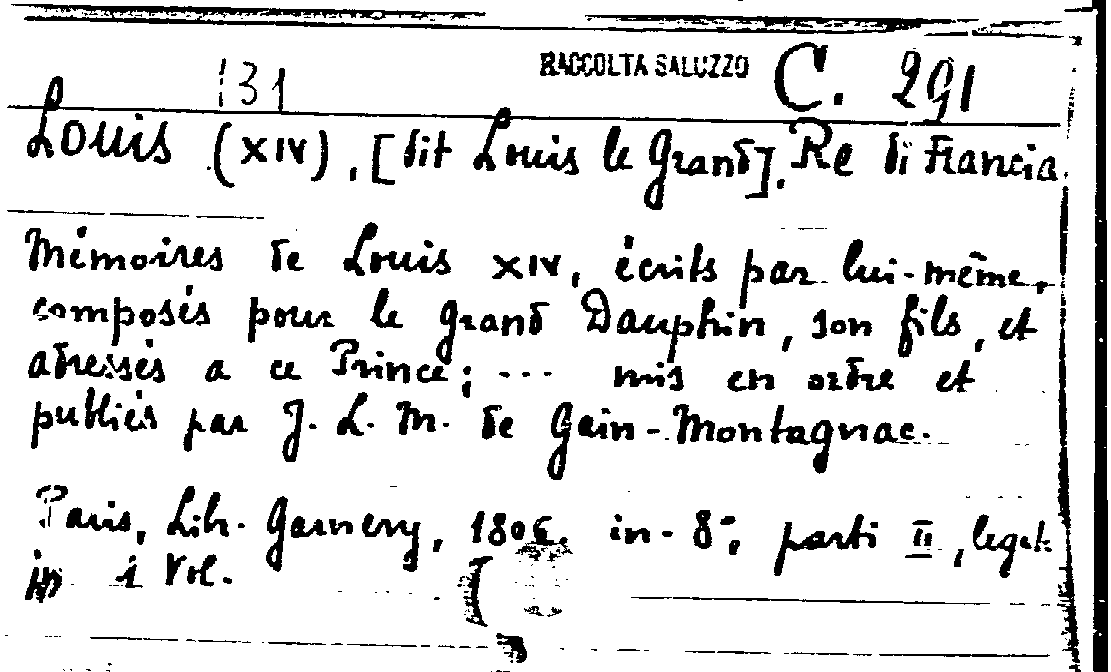 131 RACCOLTA SALUZZO C. 291
Louis (XIV), [dit Louis le Grand]. Re di Francia.
Mémoires de Louis XIV, écrits par lui-même,
composés pour le Grand Dauphin, son fils, et
adressés a ce Prince; ... mis en ordre et
publiés par J. L. M. de Gain-Montagnac.
Paris, Libr. Garnery, 1806. in-8°, parti II, legat.
in 1 Vol.